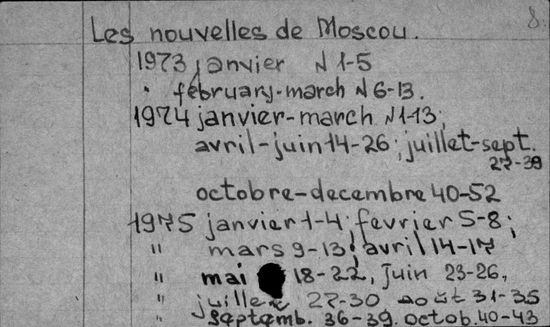 8.
Les nouvelles de Moscou.
1973 janvier N 1-5
" february-march N 6-13.
1974 janvier-march N 1-13;
avril-juin 14-26; juillet-sept.
27-39
octobre-decembre 40-52
1975 janvier 1-4; fevrier 5-8;
" mars 9-13; avril 14-17
" mai 18-22, juin 23-26,
" juillet 27-30 août 31-35
" septemb. 36-39. octob. 40-43